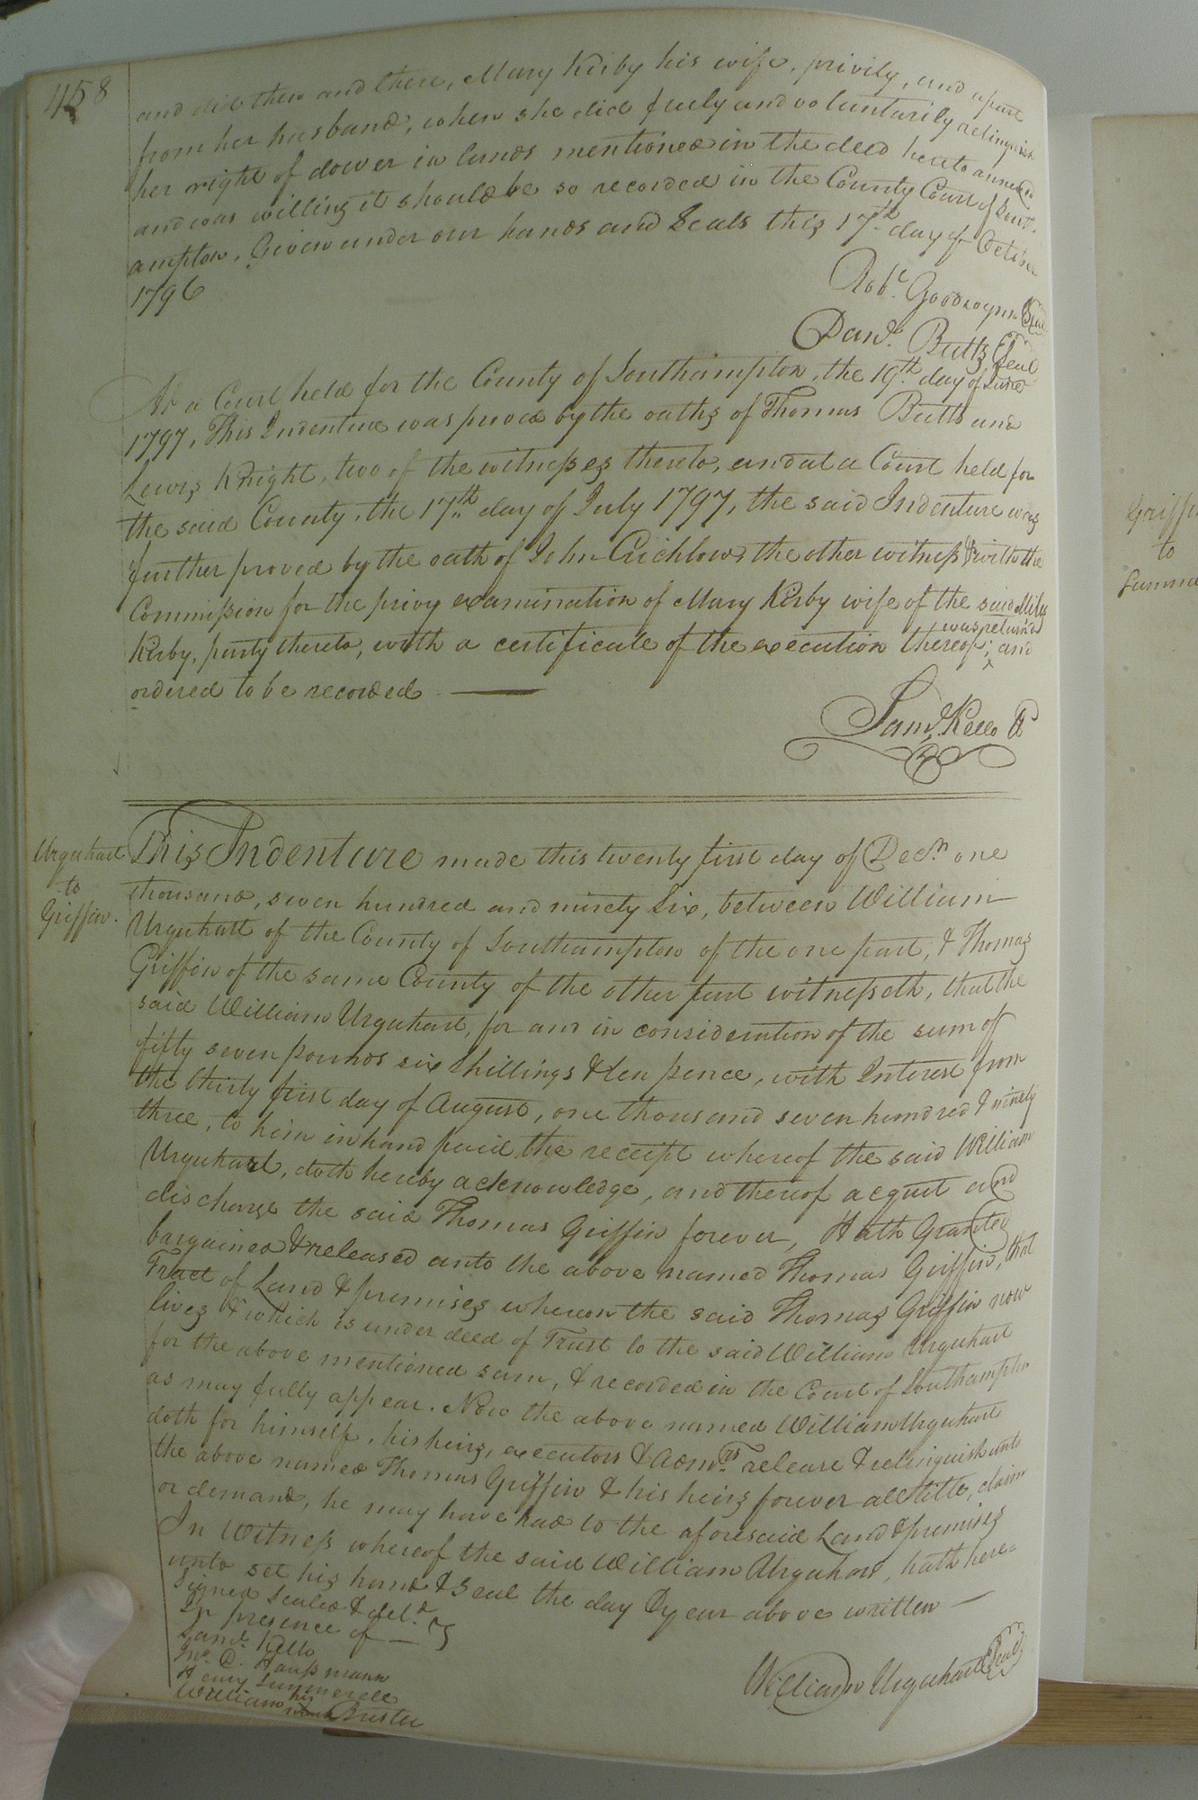 458
and did then and there, Mary Kirby his wife, privily, and apart
from her husband; when she did freely and voluntarily relinquish
her right of dower in lands mentioned in the deed hereto annexed
and was willing it should be so recorded in the County Court of South-
ampton. Given under our hands and Seals this 17th day of October
1796
Robt. Goodwynn Seal
Danl. Butts Seal
At a Court held for the County of Southampton, the 19th day of June
1797, This Indenture was proved by the oaths of Thomas Butts and
Lewis Knight, two of the witnesses thereto, and at a Court held for
the said County, the 17th day of July 1797, the said Indenture was
further proved by the oath of John Crichlow, the other witness & with the
Commission for the privy examination of Mary Kirby wife of the said Miles
Kirby, party thereto, with a certificate of the execution thereof, was return'd and
ordered to be recorded
Saml. Kello Cl
Urquhart
to
Griffin.
This Indenture made this twenty first day of Decr. one
thousand, seven hundred and ninety six, between William
Urquhart of the County of Southampton of the one part, & Thomas
Griffin of the same County of the other part witnesseth, that the
said William Urquhart, for and in consideration of the sum of
fifty seven pounds six shillings & ten pence, with Interest from
the thirty first day of August, one thousand seven hundred & ninety
three, to him in hand paid the receipt whereof the said William
Urquhart, doth hereby acknowledge, and thereof acquit and
discharge the said Thomas Griffin forever, Hath Granted
bargained & released unto the above named Thomas Griffin, that
Tract of Land & premises whereon the said Thomas Griffin now
lives & which is under deed of Trust to the said William Urquhart
for the above mentioned sum, & recorded in the Court of Southampton
as may fully appear. Now the above named William Urquhart
doth for himself, his heirs, executors & Admrs release & relinquish unto
the above named Thomas Griffin & his heirs forever all title, claim
or demand, he may have had to the aforesaid Land & premises
In Witness whereof the said William Urquhart, hath here-
unto set his hand & Seal the day & year above written
Signed Sealed & deld.
In presence of
Saml. Kello
Jno. C. Haussmann
Henry Summerell
William his mark Brister
William Urquhart Seal
Griffi
to
Summe